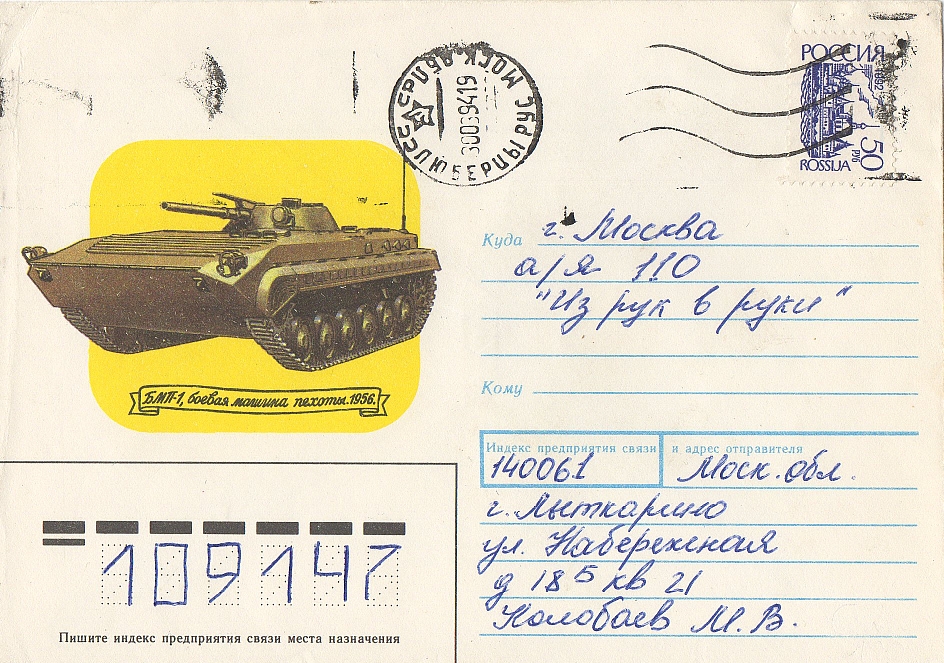 РОССИЯ
1992
50
РУБ
ROSSIJA
МОСК. ОБЛ.
ЛЮБЕРЦЫ
СССР
БМП-1, боевая машина пехоты. 1956.
Куда г. Москва
а/я 110
"Из рук в руки"
Кому
Индекс предприятия связи и адрес отправителя
140061 Моск. обл.
г. Лыткарино
ул. Набережная
д 18б кв 21
Колобаев М. В.
109147
Пишите индекс предприятия связи места назначения